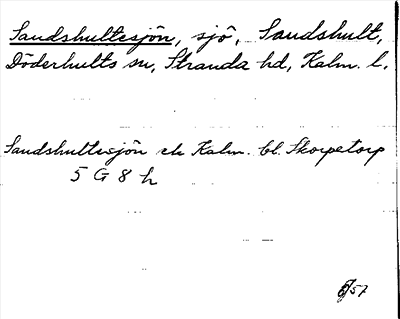 Sandshultesjön, sjö, Sandshult,
Döderhults sn, Stranda hd, Kalm. l.
Sandshultesjön ek Kalm. bl. Skorpetorp
5 G 8 h